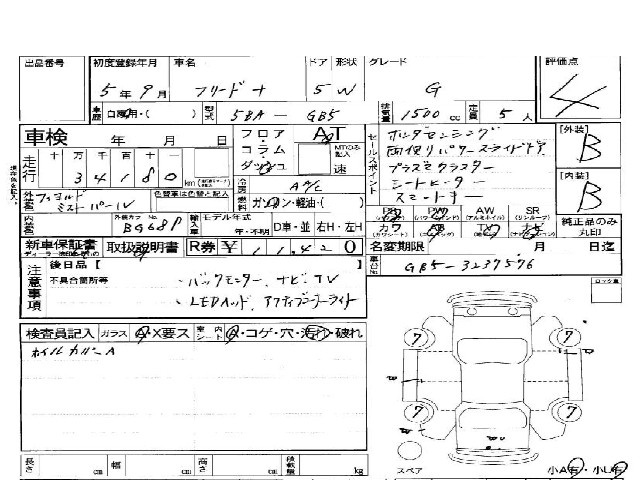 出品番号
初度登録年月 車名 ドア 形状 グレード 評価点
5年9月 フリード+ 5 W G 4
車歴 自家用・( ) 型式 5BA-GB5 排気量 1500cc 定員 5人
車検 年 月 日
フロア コラム ダッシュ AT MTのみ記入 速
走行 十 万 千 百 十 一
3 4 1 8 0 km
冷房 A/C
燃料 ガソリン・軽油・( )
セールスポイント
ホンダセンシング
両側パワースライドドア
プラズマクラスター
シートヒーター
スマートキー
[外装] B
[内装] B
外装色 フィヨルドミストパール
色替車は色替と記入
内装色 外装カラーNo. BG68P
輸入車 モデル年式 年・不明 D車・並 右H・左H
PS PW AW SR
カワ AB TV ナビ
純正品のみ丸印
新車保証書 取扱説明書 R券 ¥ 11,420
名変期限 月 日迄
車台No. GB5-3237576
注意事項
後日品[
不具合箇所等
・バックモニター、ナビ、TV
・LEDヘッド、アクティブコーナーライト
検査員記入 ガラス A・X要ス 車内シート コゲ・穴・汚れ・破れ
ホイルカバーA
7 7
7 7
スペア
小A有・小U有
長さ cm 幅 cm 高さ cm 積載量 kg